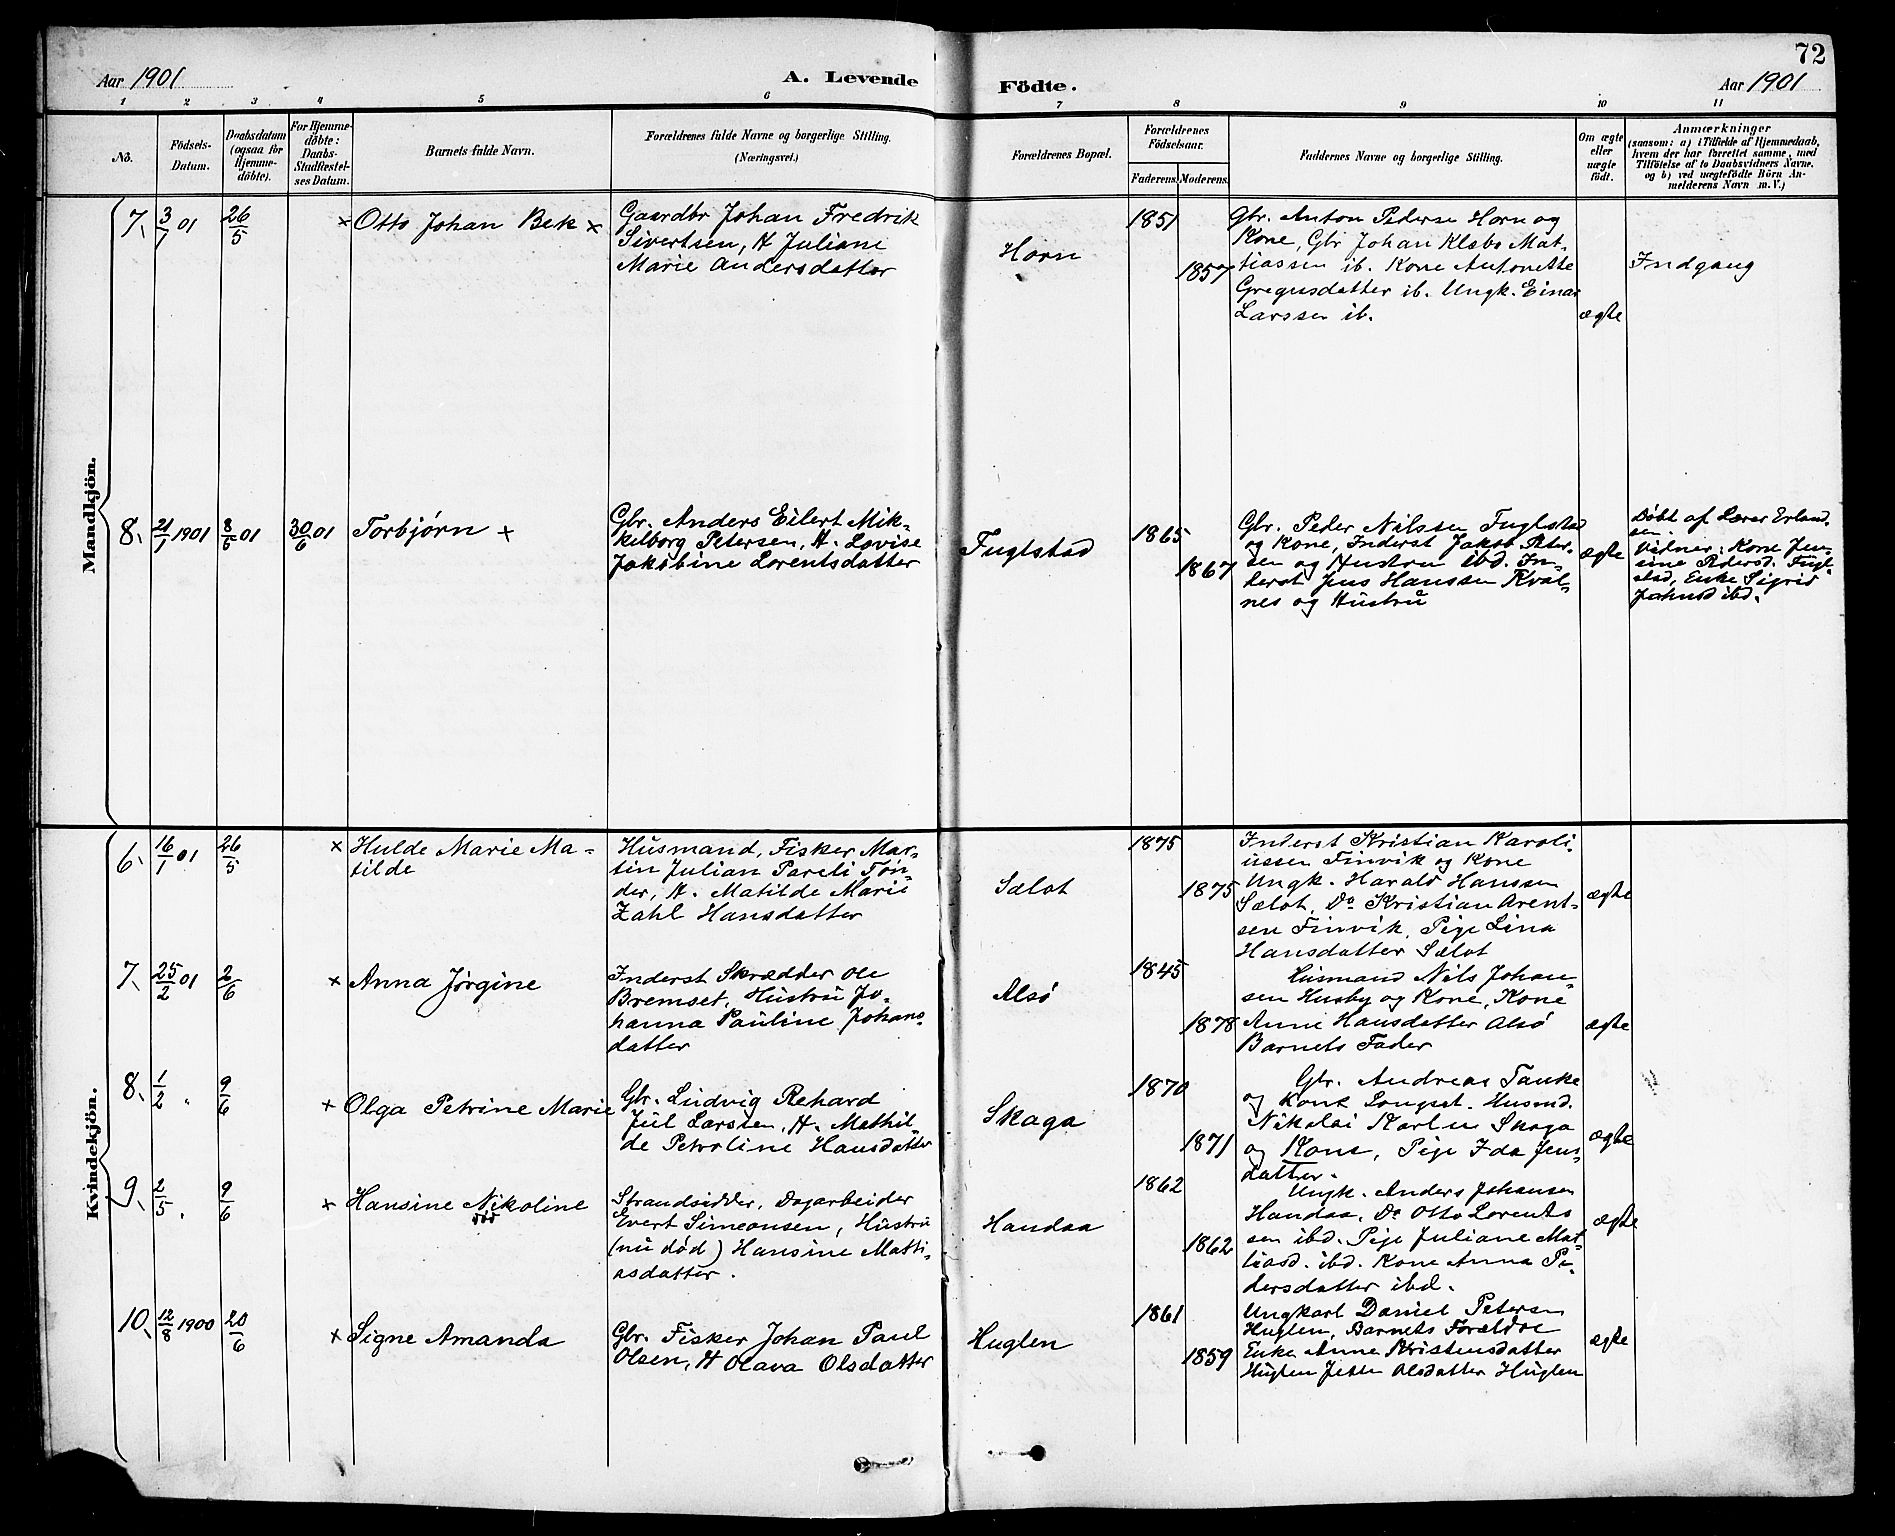 72
Aar 1901
A. Levende
Födte.
Aar 1901
1 2 3 4 5 6 7 8 9 10 11
No.
Födsels-
Datum.
Daabsdatum
(ogsaa for
Hjemme-
döbte).
For Hjemme-
döbte:
Daabs-
Stadfæstel-
ses Datum.
Barnets fulde Navn.
Forældrenes fulde Navne og borgerlige Stilling.
(Næringsvei.)
Forældrenes Bopæl.
Forældrenes
Födselsaar.
Faderens. Moderens.
Faddernes Navne og borgerlige Stilling.
Om ægte
eller
uægte
födt.
Anmærkninger
(saasom: a) i Tilfælde af Hjemmedaab,
hvem der har forrettet samme, med
Tilföielse af to Daabsvidners Navne.
og b) ved uægtefödte Börn An-
melderens Navn m. V.)
Mandkjön.
7, 3/1 01 26/5
× Otto Johan Bek ×
Gaardbr Johan Fredrik
Sivertsen, H Juliane
Marie Andersdatter
Horn
1851
1857
Gbr. Anton Peders Horn og
Kone, Gbr Johan Klæbo Mat-
tiassen ib. Kone Antonette
Gregusdatter ib. Ungk. Einar
Larssen ib.
ægte
Indgang
8, 21/1 1901 8/5 01 30/6 01
Torbjørn ×
Gbr. Anders Eilert Mik-
kelborg Petersen, H. Lovise
Jakobine Lorentsdatter
Fuglstad
1865
1867
Gbr. Peder Nilssen Fuglstad
og Kone, Inderst Jakob Peter-
sen og Hustru ibd. In-
derst Jens Hanssen Kval-
nes og Hustru
ægte
Døbt af Lærer Erland-
sen.
Vidner: Kone Jen-
sine Pedersd. Fugl-
stad, Enke Sigrid
Johnsd ibd.
Kvindekjön.
6, 16/1 01 26/5
× Hulde Marie Ma-
tilde
Husmand, Fisker Mar-
tin Julian Pareli Tøn-
der, H. Matilde Marie
Zahl Hansdatter
Sælot
1875
1875
Inderst Kristian Karoli-
ussen Finvik og Kone
Ungk. Harald Hanssen
Sælot, Do Kristian Arent-
sen Finvik, Pige Lina
Hansdatter Sælot
ægte
7, 25/2 01 2/6
× Anna Jørgine
Inderst Skrædder Ole
Bremset, Hustru Jo-
hanna Pauline Johans-
datter
Alsø
1845
1878
Husmand Nils Johan-
sen Husby og Kone, Kone
Anne Hansdatter Alsø
Barnets Fader
ægte
8, 1/2 " 9/6
× Olga Petrine Marie
Gbr. Ludvig Rehard
Jul Larssen, H. Mathil-
de Petroline Hansdatter
Skaga
1870
1871
Gbr. Andreas Tanke
og Kone Longset. Husmd.
Nikolai Karl Skaga
og Kone, Pige Ida Jens-
datter.
ægte
9, 2/5 " 9/6
× Hansine Nikoline
død
Strandsidder, Dagarbeider
Evert Simeonsen, Hustru
(nu død) Hansine Matti-
asdatter.
Handaa
1862
1862
Ungk. Anders Johansen
Handaa, Do Otto Lorents
sen ibd. Pige Juliane Mat-
tiasd. ibd. Kone Anna Pe-
dersdatter ibd.
ægte
10, 12/8 1900 20/6
× Signe Amanda
Gbr. Fisker Johan Paul
Olsen, H Olava Olsdatter
Huglen
1861
1859
Ungkarl Daniel Petersen
Huglen, Barnets Forældre
Enke Anne Kristensdatter
Huglen Jette Olsdatter Huglen
ægte